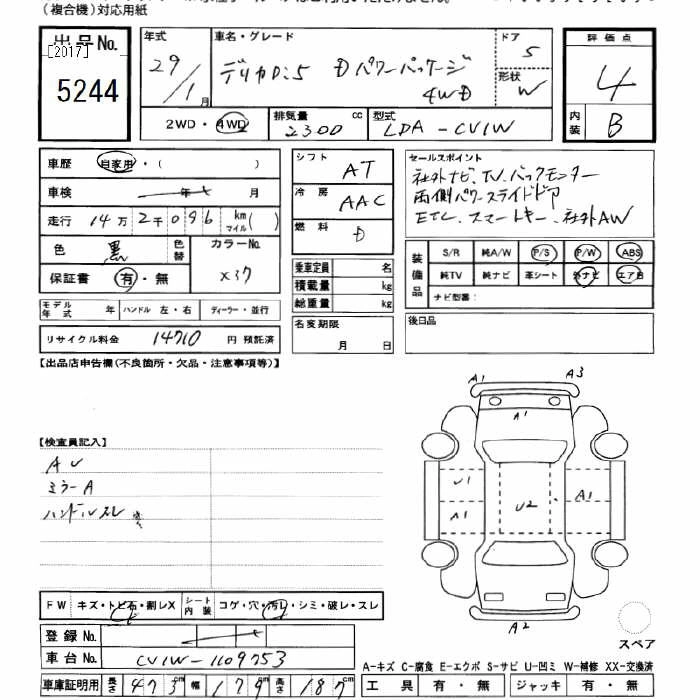 (複合機)対応用紙
出品No. [2017] 5244
年式 29/1月
車名・グレード デリカD:5 Dパワーパッケージ 4WD
ドア 5
形状 W
評価点 4
内装 B
2WD・4WD
排気量 2300 cc
型式 LDA-CV1W
車歴 自家用・( )
車検 年 月
走行 14万2千096 km マイル( )
色 黒 色替
カラーNo. X37
保証書 有・無
モデル年式 年 ハンドル 左・右 ディーラー・並行
リサイクル料金 14710 円 預託済
シフト AT
冷房 AAC
燃料 D
乗車定員 名
積載量 kg
総重量 kg
名変期限 月 日
セールスポイント
社外ナビ、TV、バックモニター
両側パワースライドドア
ETC、スマートキー、社外AW
装備品 S/R 純A/W P/S P/W ABS
純TV 純ナビ 革シート 外ナビ エアB
ナビ型番:
後日品
【出品店申告欄(不良箇所・欠品・注意事項等)】
【検査員記入】
AU
ミラーA
ハンドルスレ
A1 A3
A1
U1 A1
U2
A1
A2
スペア
FW キズ・トビ石・割レX シート内装 コゲ・穴・汚レ・シミ・破レ・スレ
登録No.
車台No. CV1W-1109753
車庫証明用 長さ 473 幅 179 高さ 187
A-キズ C-腐食 E-エクボ S-サビ U-凹ミ W-補修 XX-交換済
工具 有・無 ジャッキ 有・無